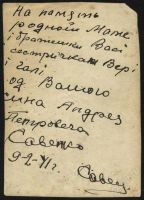 На память
родной Маме
і братікам Васі
сестрічкам Вері
і Галі
од Вашого
сина Андрея
Петровеча
Савенко
9-2-41 г.
Савен